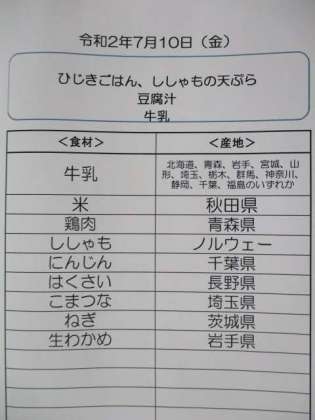 令和2年7月10日（金）
ひじきごはん、ししゃもの天ぷら
豆腐汁
牛乳
＜食材＞ ＜産地＞
牛乳 北海道、青森、岩手、宮城、山
形、埼玉、栃木、群馬、神奈川、
静岡、千葉、福島のいずれか
米 秋田県
鶏肉 青森県
ししゃも ノルウェー
にんじん 千葉県
はくさい 長野県
こまつな 埼玉県
ねぎ 茨城県
生わかめ 岩手県